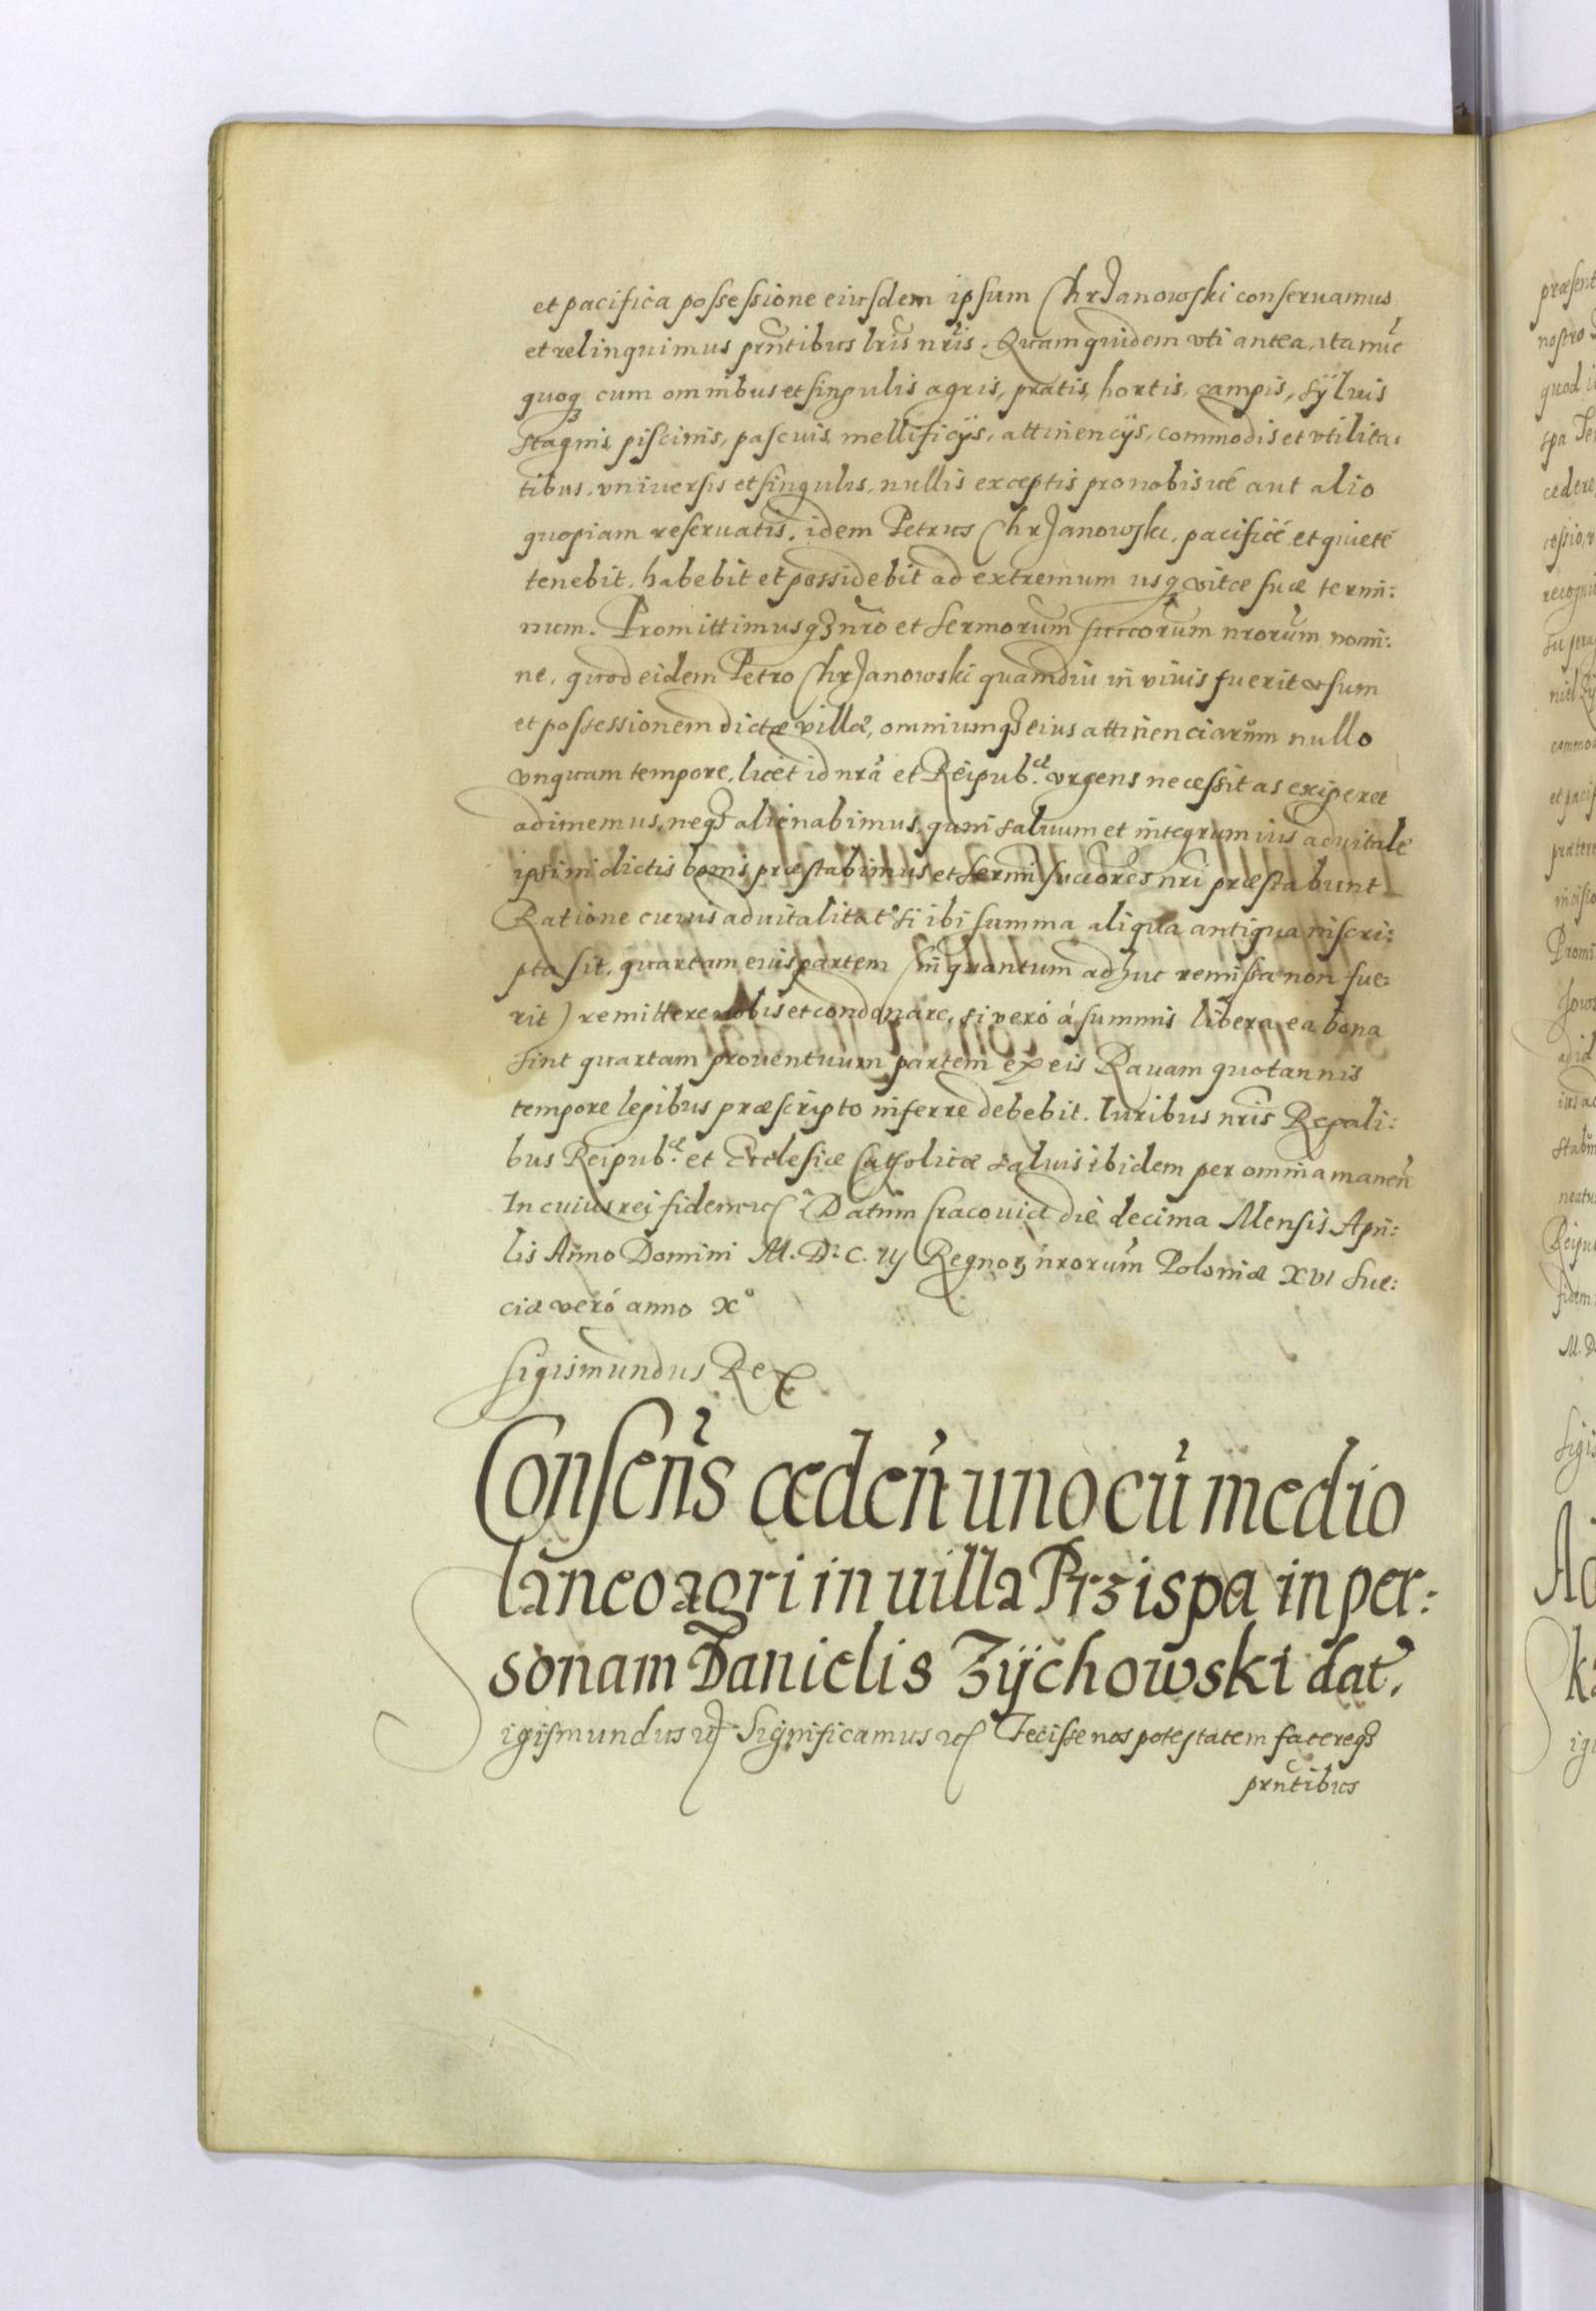 et pacifica possessione eiusdem ipsum Chrzanowski conseruamus
et relinquimus prñtibus lris nr̃is. Quam quidem vti antea, ita nũc
quoq3 cum omnibus et singulis agris, pratis, hortis, campis, sÿluis
stagnis, piscinis, pascuis, mellificijs, attinencijs, commodis et vtilita-
tibus, vniuersis et singulis, nullis exceptis pro nobis uè aut alio
quopiam reseruatis, idem Petrus Chrzanowski, pacificè et quietè
tenebit, habebit et possidebit ad extremum usq3 vitæ suæ termi:
num. Promittimusq3 nr̃o et Sermorum succorum nrorum nomi:
ne, quod eidem Petro Chrzanowski quamdiu in viuis fuerit vsum
et possessionem dictæ villæ, omniumq3 eius attinenciarum nullo
vnquam tempore, licet id nrã et Reipub.cæ vrgens necessitas exigeret
adimemus, neq3 alienabimus, quin saluum et integrum ius aduitale
ipsi in dictis bonis præstabimus et Sermi succores nri præstabunt
Ratione cuius aduitalitat si ibi summa aliqua antiqua inscri:
pta sit, quartam eius partem (in quantum adhuc remissa non fue:
rit) remittere nobis et condonare, si verò à summis libera ea bona
sint quartam prouentuum partem ex eis Rauam quotannis
tempore legibus præscripto inferre debebit. Iuribus nr̃is Regali:
bus Reipub.cæ et Ecclesiæ Catholicæ saluis ibidem per omnia maneñ
In cuius rei fidem etc Datum Cracouiæ die decima Mensis Apri:
lis Anno Domini M.D.C.iij Regnor3 nrorum Poloniæ XVI Sue:
ciæ verò anno X°
Sigismundus Rex
Consens cedeñ uno cũ medio
laneo agri in uilla Przispa in per:
sonam Danielis Zÿchowski dat.
Sigismundus etc Significamus etc Fecisse nos potestatem facereq3
prñtibus